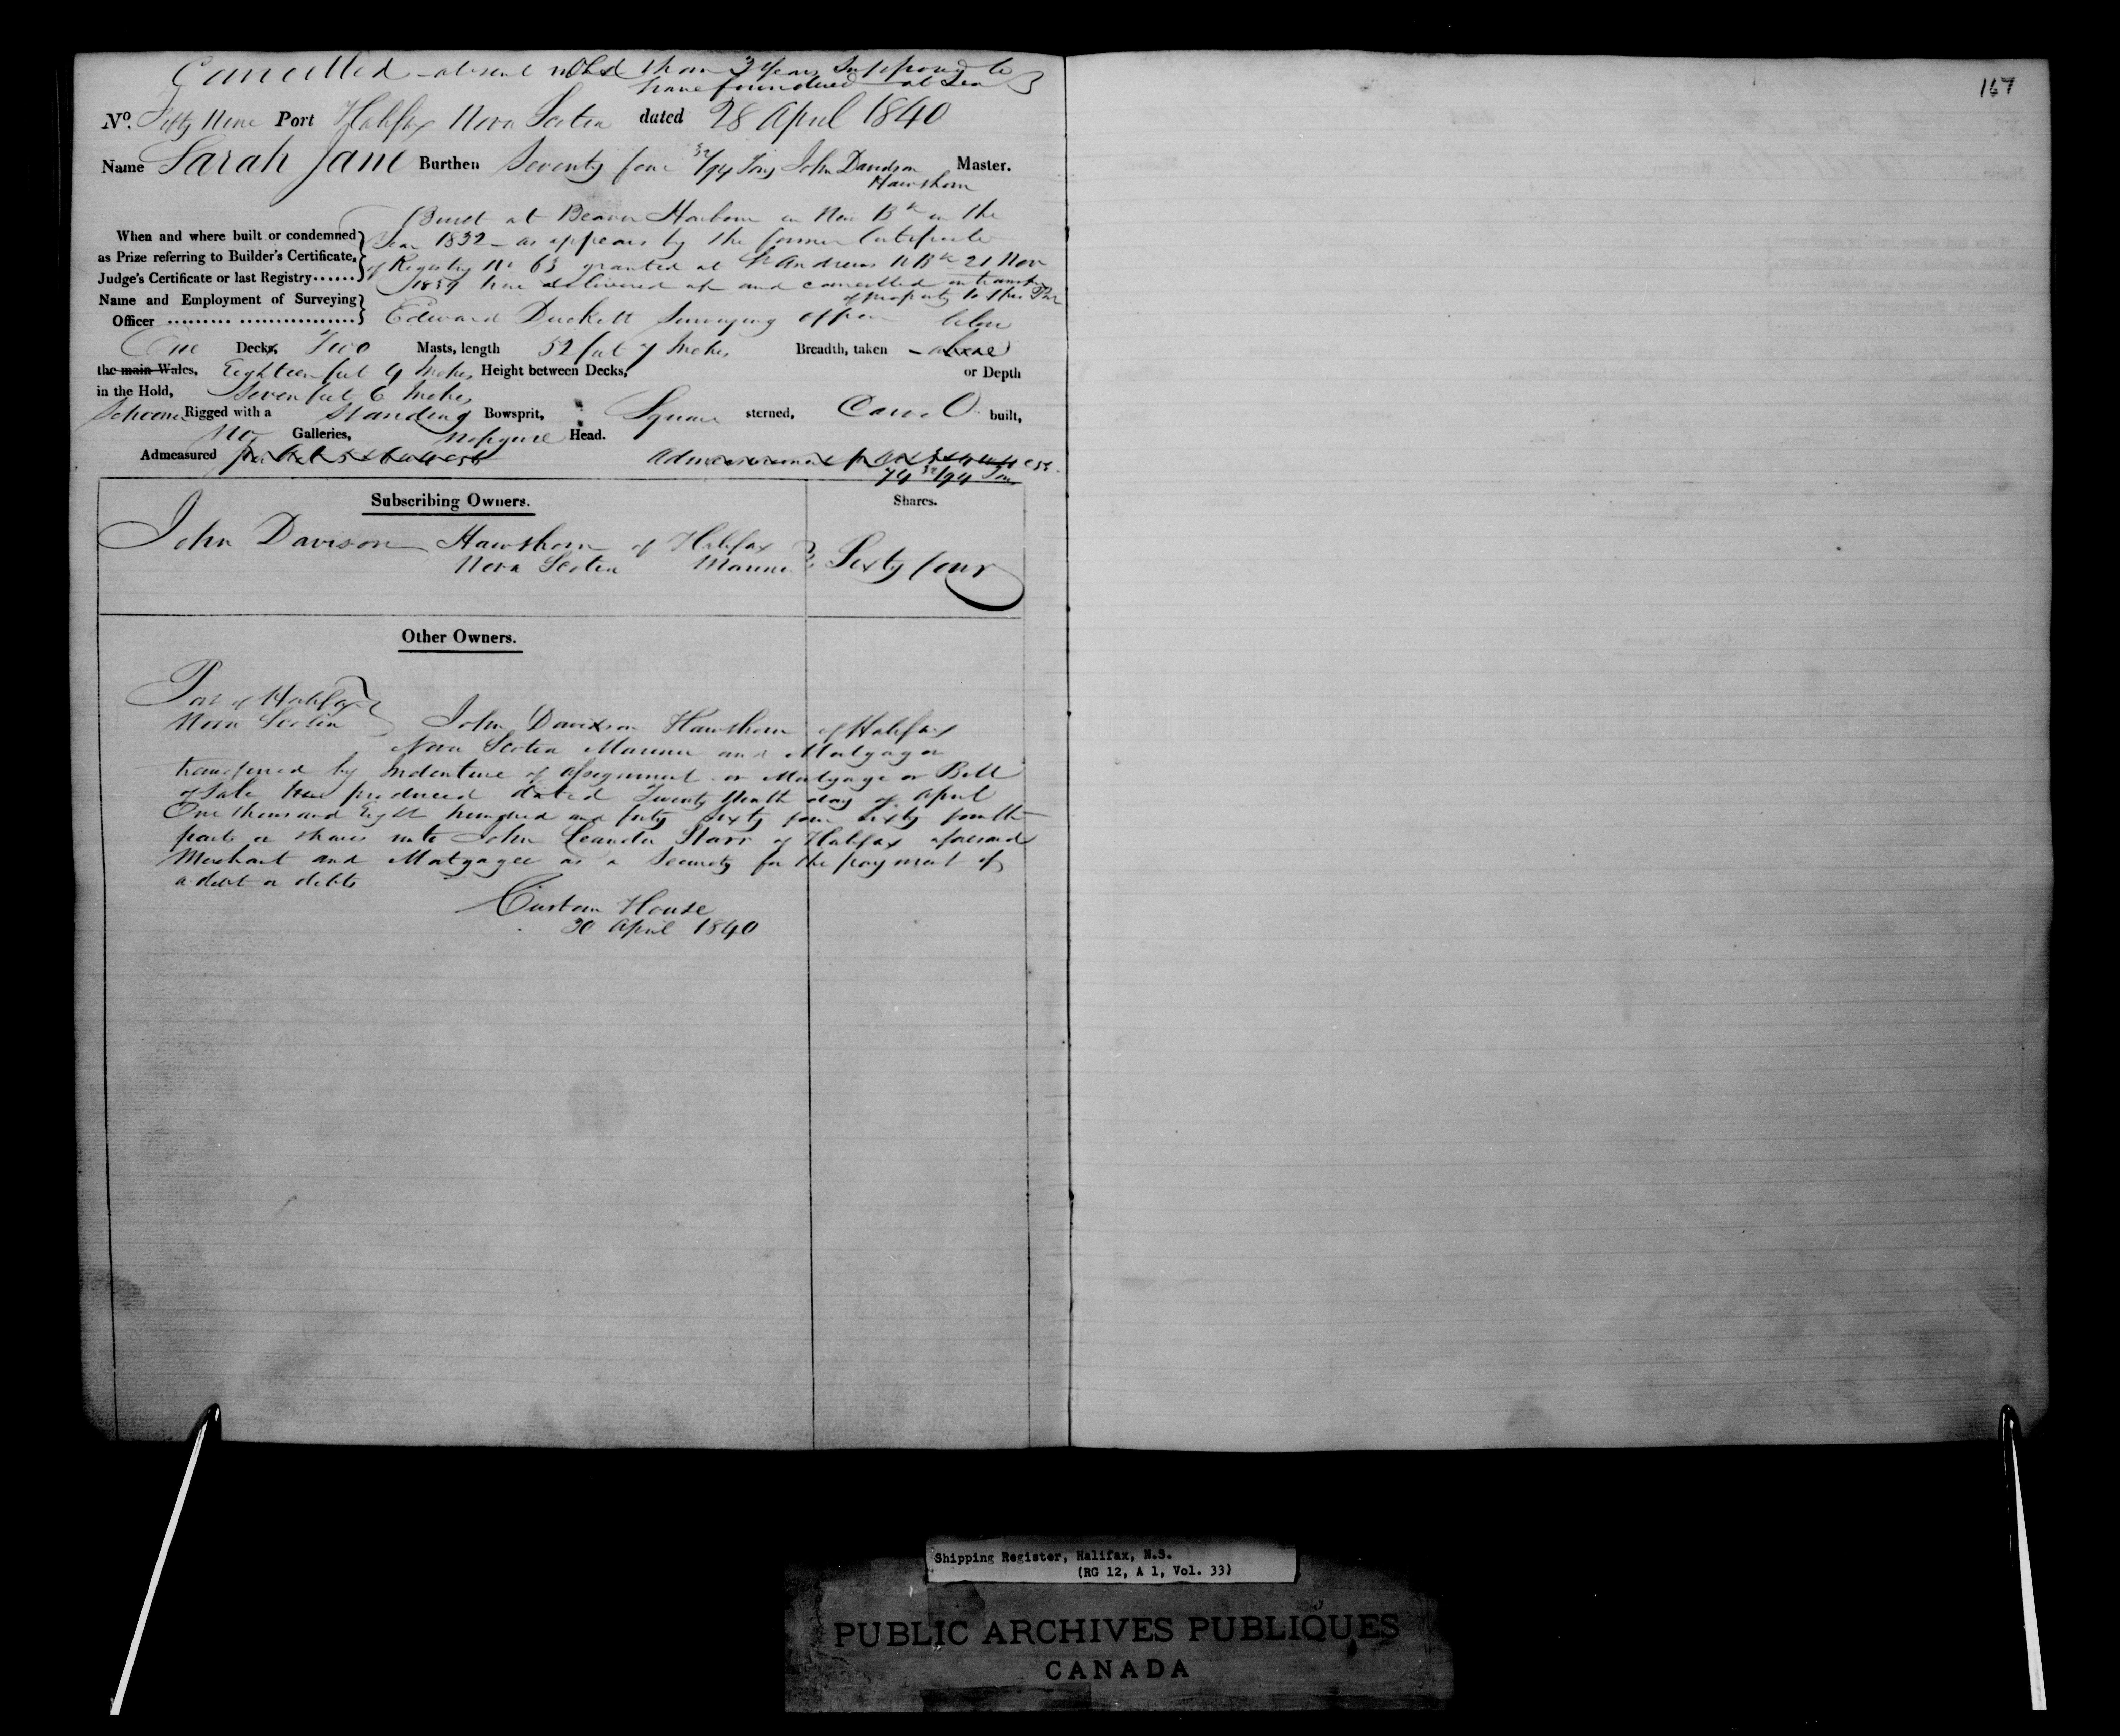 Cancelled absent more than 3 Years Supposed to
have foundered at Sea
167
No. Fifty Nine Port Halifax Nova Scotia dated 28 April 1840
Name Sarah Jane Burthen Seventy four 32/94 Tons John Davidson Master.
Hawthorn
Built at Beaver Harbour in New Bk in the
When and where built or condemned Year 1832 - as appears by the former Certificate
as Prize referring to Builder's Certificate, of Registry No 63 granted at St Andrews N Bk 21 Nov
Judge's Certificate or last Registry...... 1839 here delivered up and cancelled on transfer
of property to this Port
Name and Employment of Surveying
Officer ......... ................ Edward Duckett Surveying Officer below
One Decks, Two Masts, length 52 feet 7 Inches Breadth, taken - above
the main Wales, Eighteen feet 9 Inches Height between Decks, or Depth
in the Hold, Seven feet 6 Inches
Schooner Rigged with a Standing Bowsprit, Square sterned, Carvel built,
No Galleries, No figure Head.
Admeasured
74 32/94 Tons
Subscribing Owners. Shares.
John Davison Hawthorn of Halifax
Nova Scotia Mariner Sixty four
Other Owners.
Port of Halifax
Nova Scotia John Davison Hawthorn of Halifax
Nova Scotia Mariner and Mortgagor
transferred by Indenture of Assignment or Mortgage or Bill
of Sale here produced dated Twenty Ninth day of April
One thousand Eight hundred and forty Sixty four Sixty fourth
parts or shares unto John Leander Starr of Halifax aforesaid
Merchant and Mortgagee as a Security for the payment of
a debt or debts
Custom House
30 April 1840
Shipping Register, Halifax, N.S.
(RG 12, A 1, Vol. 33)
PUBLIC ARCHIVES PUBLIQUES
CANADA